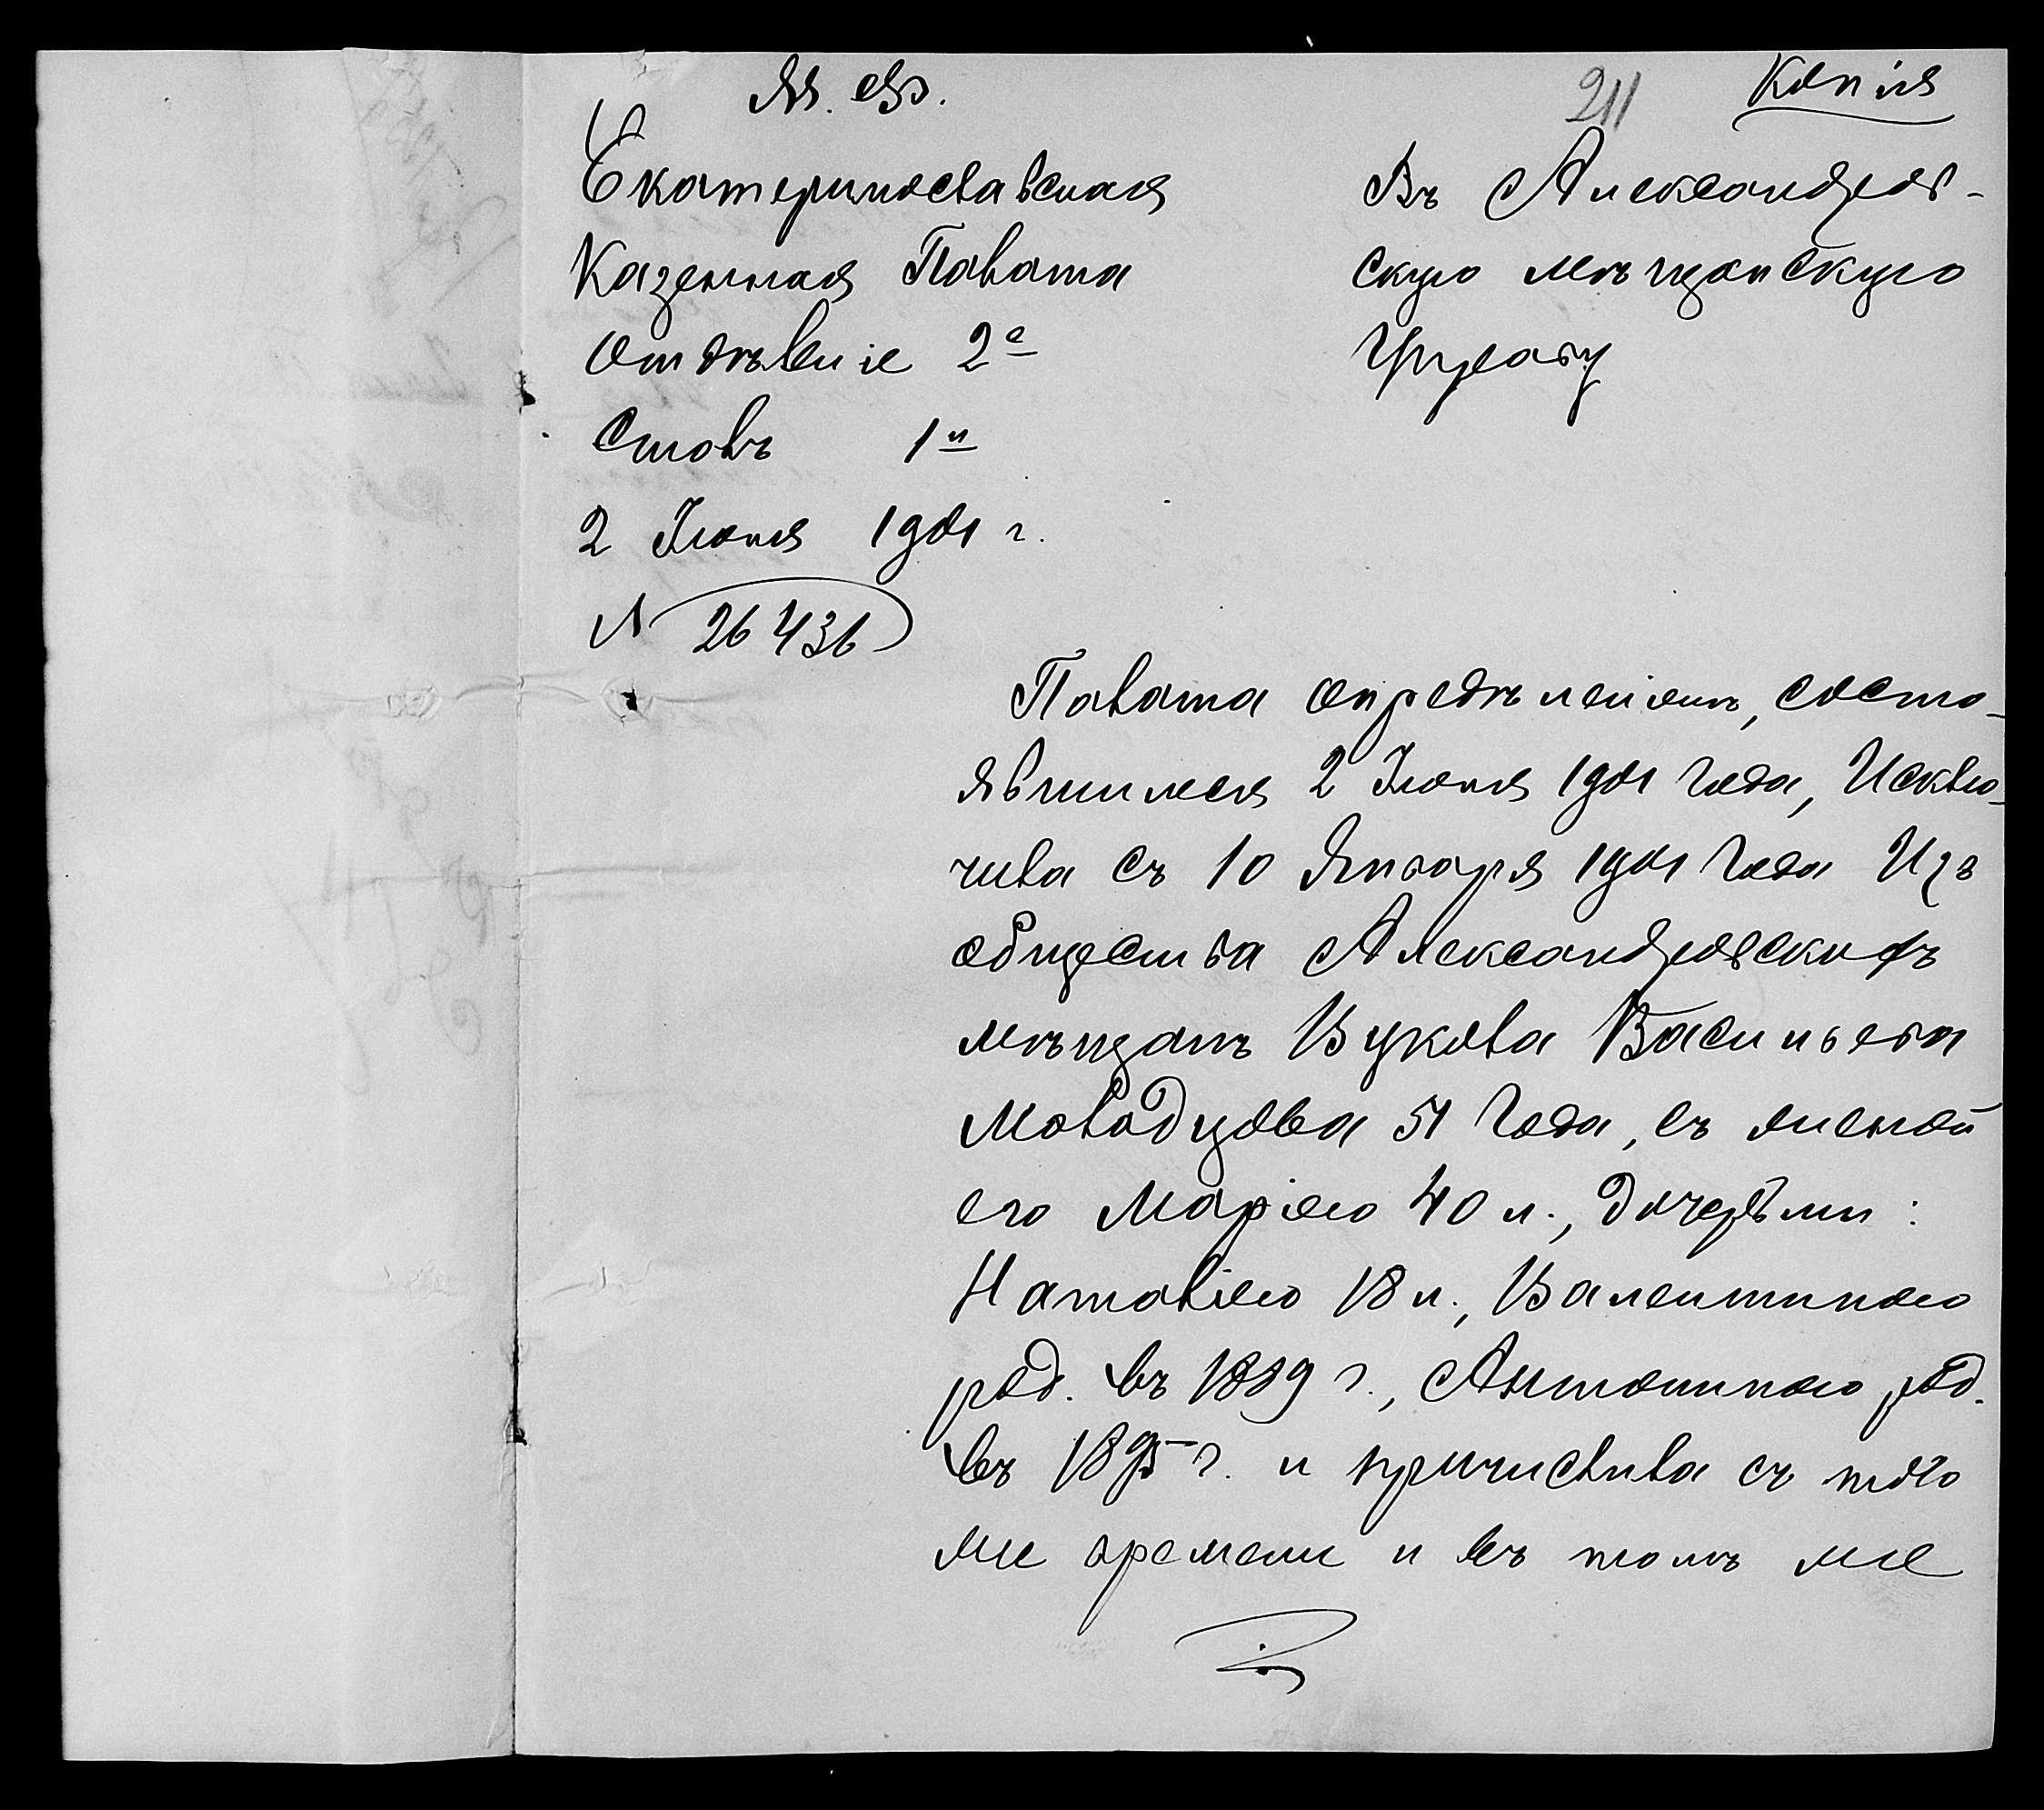 М. Ф.
211
Копія
Екатеринославская
Казенная Палата
Отдѣленіе 2е
Столъ 1й
2 Іюня 1901 г.
№ 26436
Въ Александров-
скую мѣщанскую
Управу
Палата опредѣленіемъ, состо-
явшимся 2 Іюня 1901 года, Исклю-
чила съ 10 Января 1901 года Изъ
общества Александровскихъ
мѣщанъ Вукола Васильева
Молодцова 51 года, съ женой
его Маріею 40 л., дочерьми:
Наталіею 18 л., Валентиною
род. въ 1889 г., Антониною род.
въ 1895 г. и причислила съ того
же времени и въ томъ же